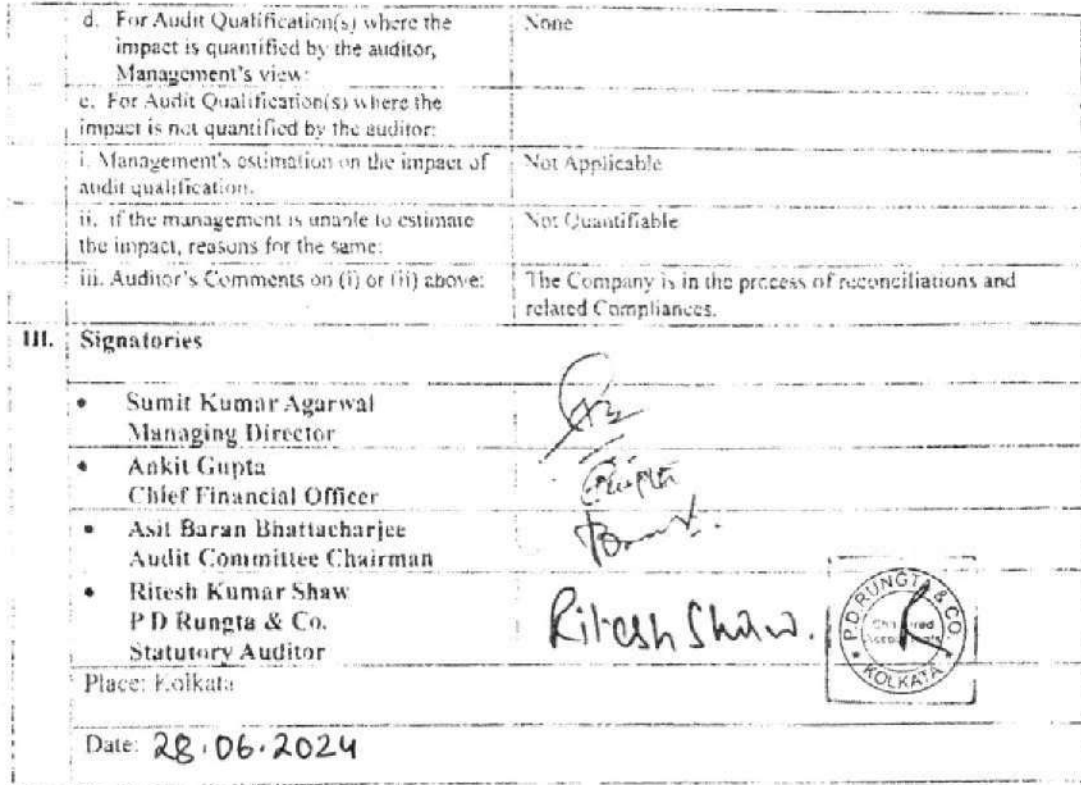 d. For Audit Qualification(s) where the
impact is quantified by the auditor,
Management's view:
None
e. For Audit Qualification(s) where the
impact is not quantified by the auditor:
i. Management's estimation on the impact of
audit qualification.
Not Applicable
ii. if the management is unable to estimate
the impact, reasons for the same:
Not Quantifiable
iii. Auditor's Comments on (i) or (ii) above:
The Company is in the process of reconciliations and
related Compliances.
III. Signatories
• Sumit Kumar Agarwal
Managing Director
• Ankit Gupta
Chief Financial Officer
• Asit Baran Bhattacharjee
Audit Committee Chairman
• Ritesh Kumar Shaw
P D Rungta & Co.
Statutory Auditor
Ritesh Shaw.
P.D. RUNGTA & CO.
KOLKATA
Place: Kolkata
Date: 28.06.2024